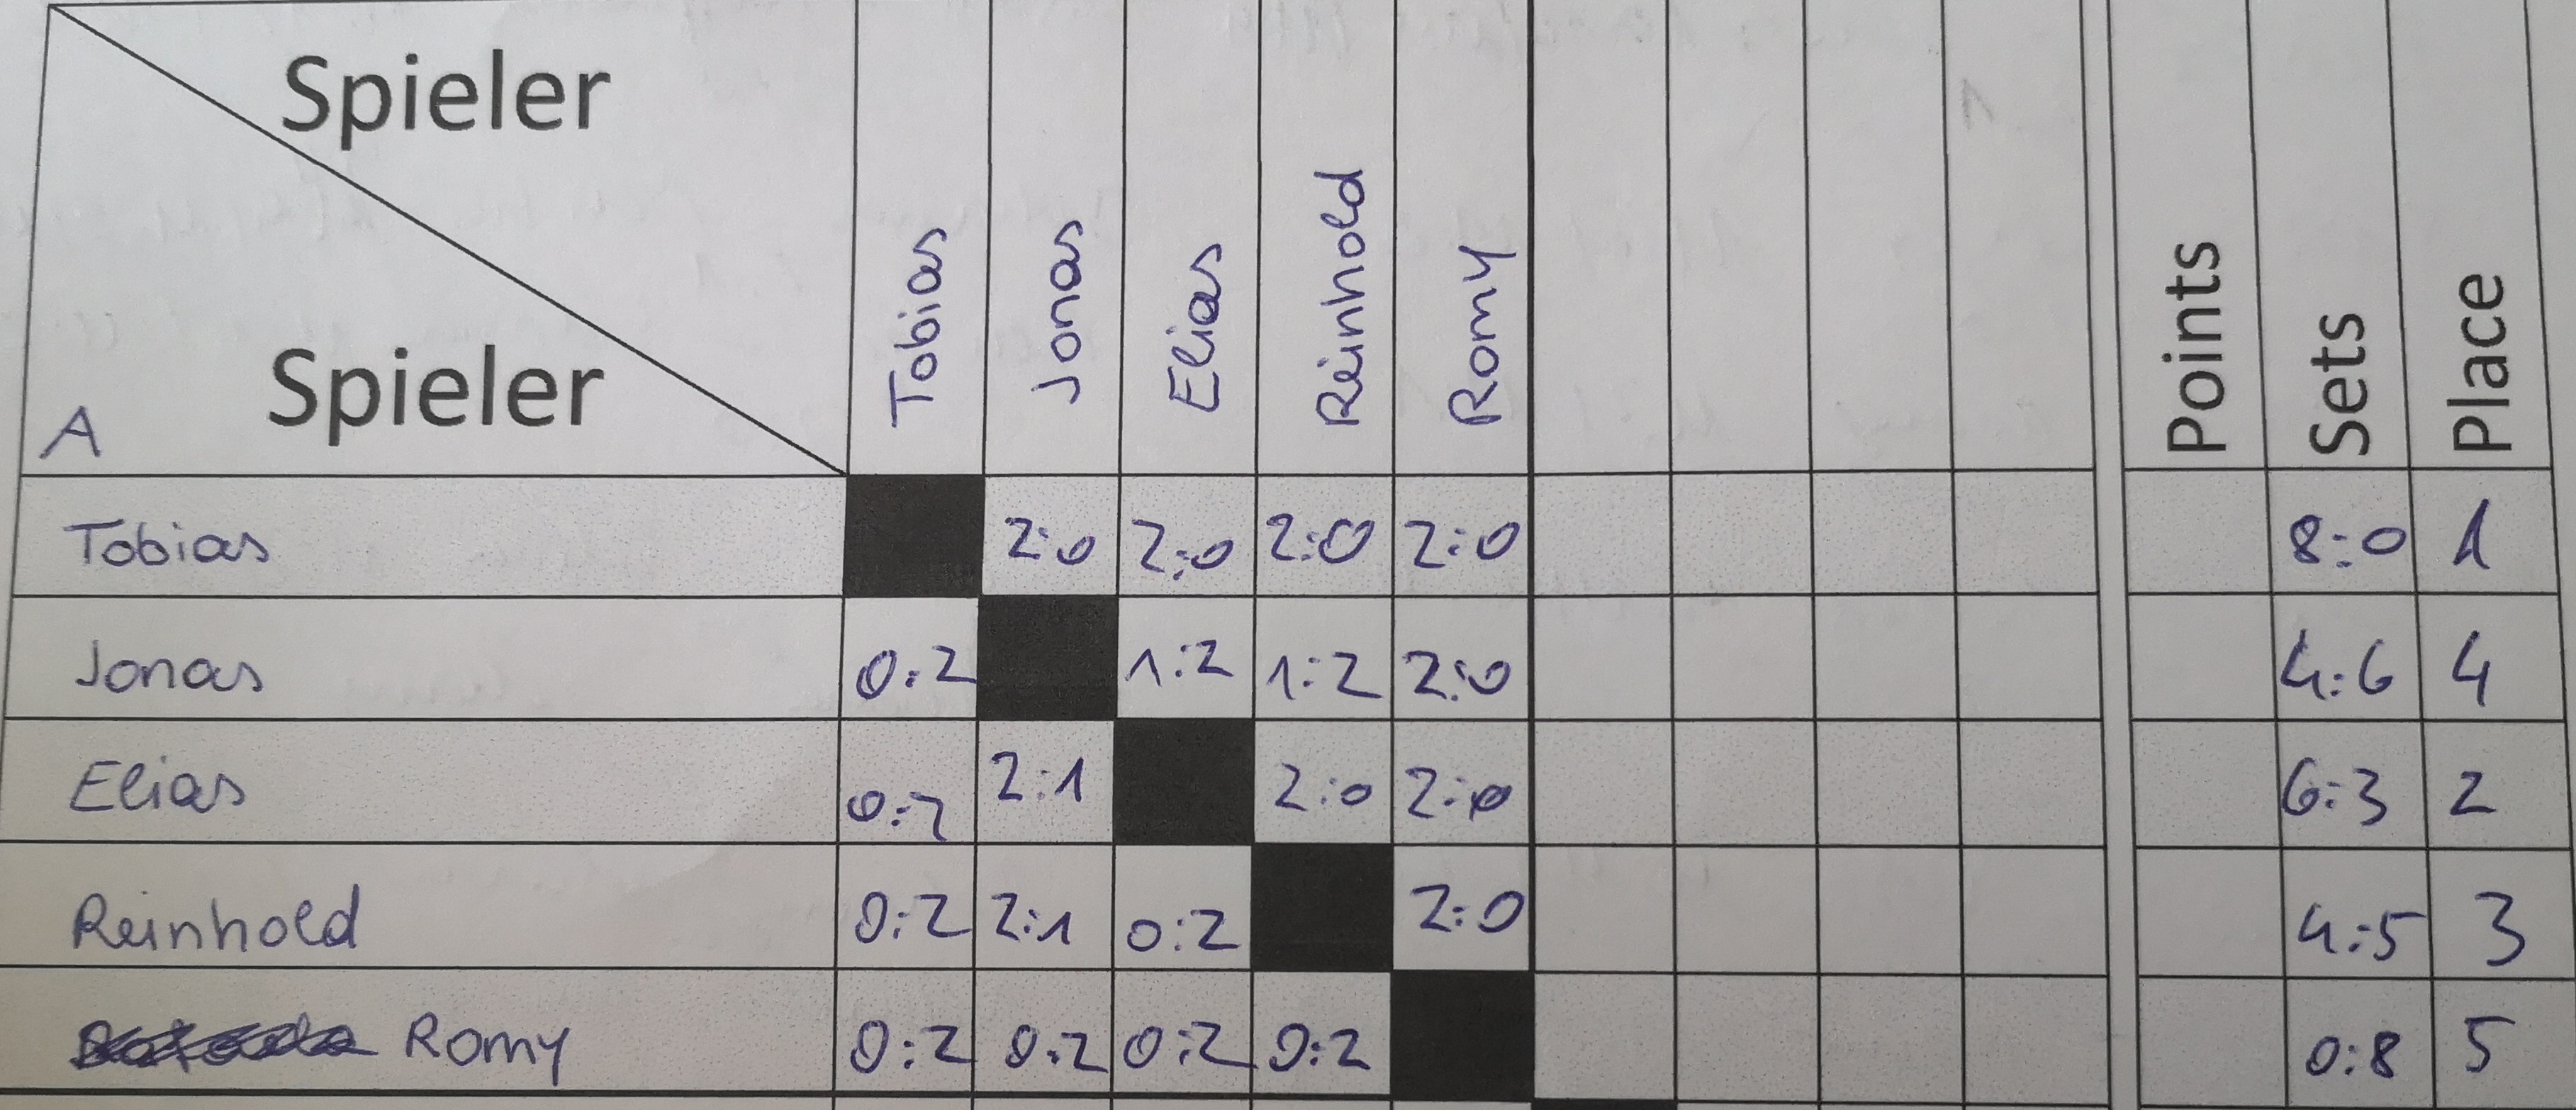 Spieler
Spieler
A
Tobias Jonas Elias Reinhold Romy Points Sets Place
Tobias 2:0 2:0 2:0 2:0 8:0 1
Jonas 0:2 1:2 1:2 2:0 4:6 4
Elias 0:2 2:1 2:0 2:0 6:3 2
Reinhold 0:2 2:1 0:2 2:0 4:5 3
Romy 0:2 0:2 0:2 0:2 0:8 5